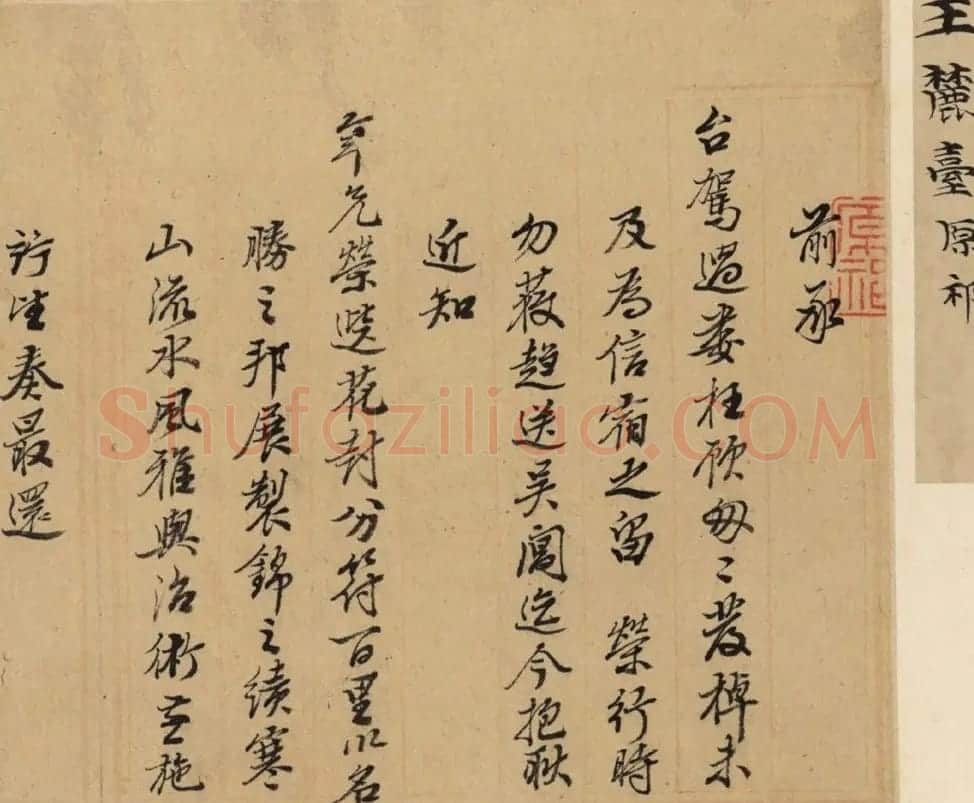 王麓臺原祁
前承
台駕過婁枉顧匆匆發棹未
及為信宿之留 榮行時
勿獲趨送吴閶迄今抱耿
近知
年兄榮遷花封分符百里以名
勝之邦展製錦之績寒
山流水風雅與治術並施
佇望奏最還
Shufaziliao.COM